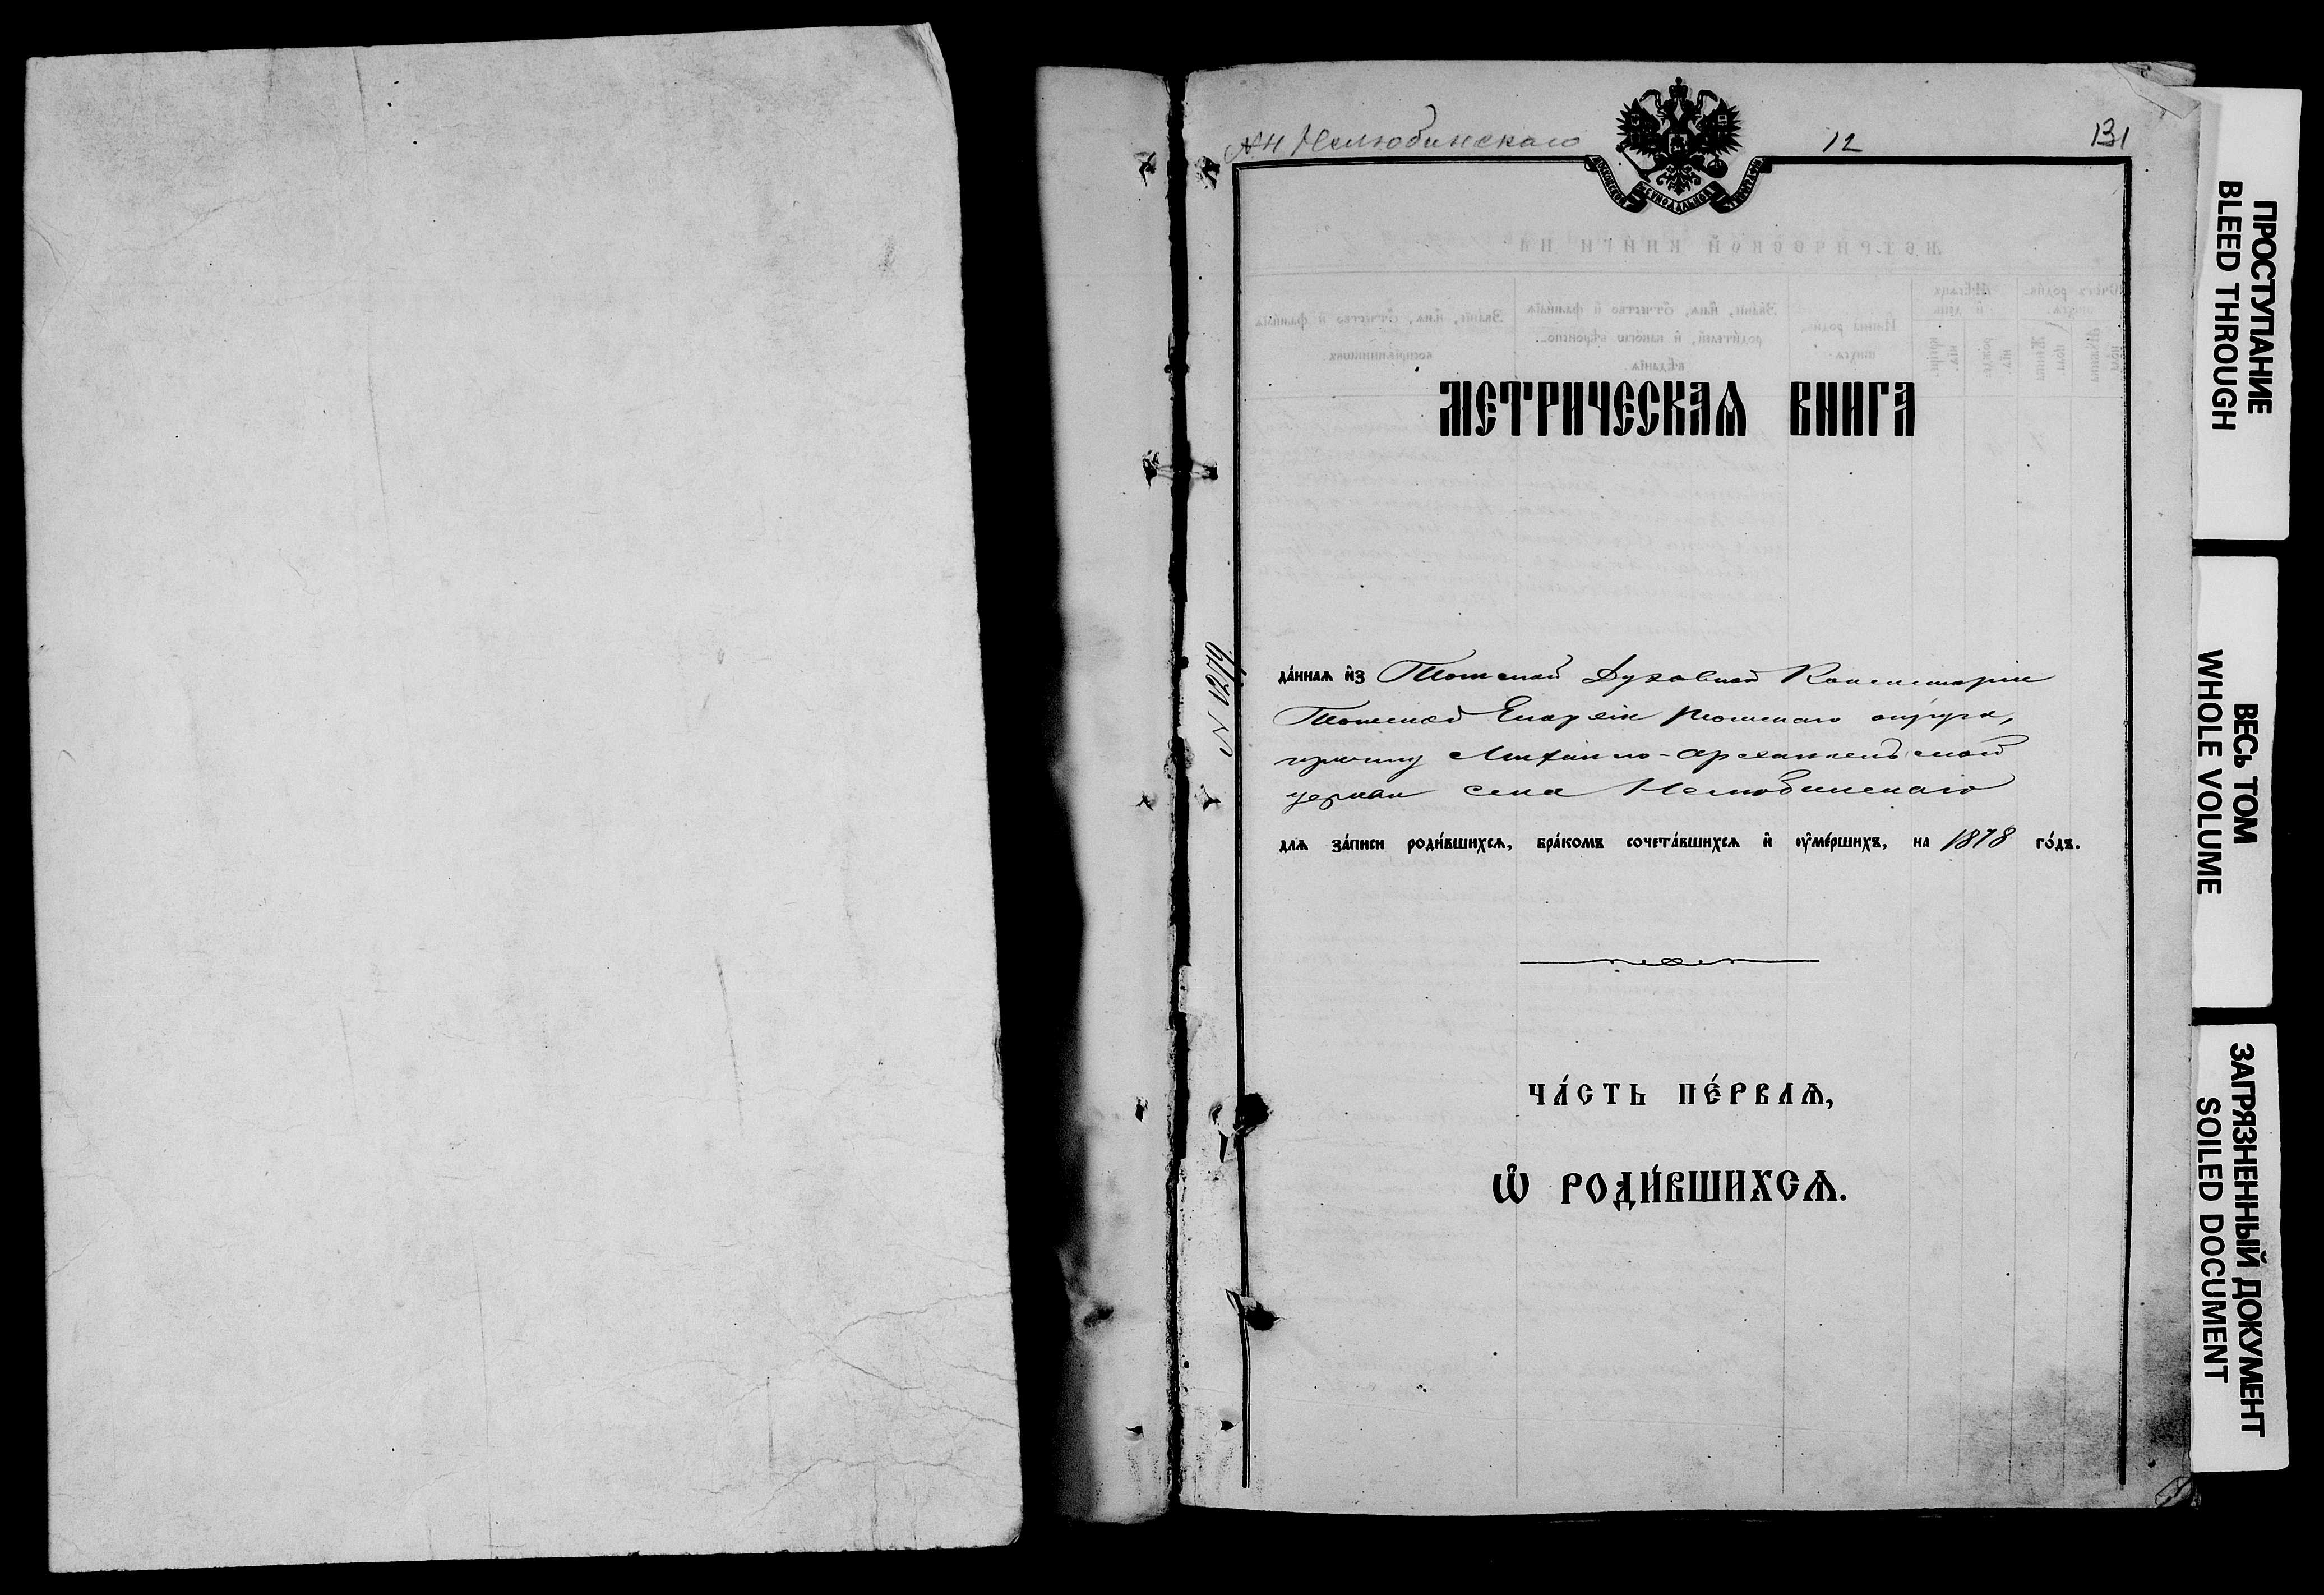 №4 Нелюбинскаго
12
131
МОСКОВСКОЙ СѴНОДАЛЬНОЙ ТѴПОГРАФІИ
МЕТРИЧЕСКАѦ КНИГА
да́ннаѧ и҆з Томской Духовной Консисторіи
Томской Епархіи Томскаго округа,
причту Михаило-Архангельской
церкви села Нелюбинскаго
для за́писи роди́вшихсѧ, бра́комъ сочета́вшихсѧ и҆ ᲂу҆ме́ршихъ, на 1878 го́дъ.
ЧА́СТЬ ПЕ́РВАѦ,
Ѡ҆ РОДИ́ВШИХСѦ.
ПРОСТУПАНИЕ
BLEED THROUGH
ВЕСЬ ТОМ
WHOLE VOLUME
ЗАГРЯЗНЕННЫЙ ДОКУМЕНТ
SOILED DOCUMENT